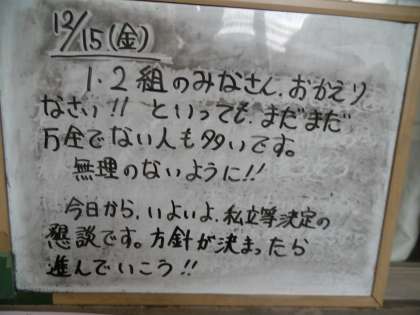 12/15(金)
1・2組のみなさん、おかえり
なさい!! といっても、まだまだ
万全でない人も多いです。
無理のないように!!
今日から、いよいよ、私立等決定の
懇談です。方針が決まったら
進んでいこう!!